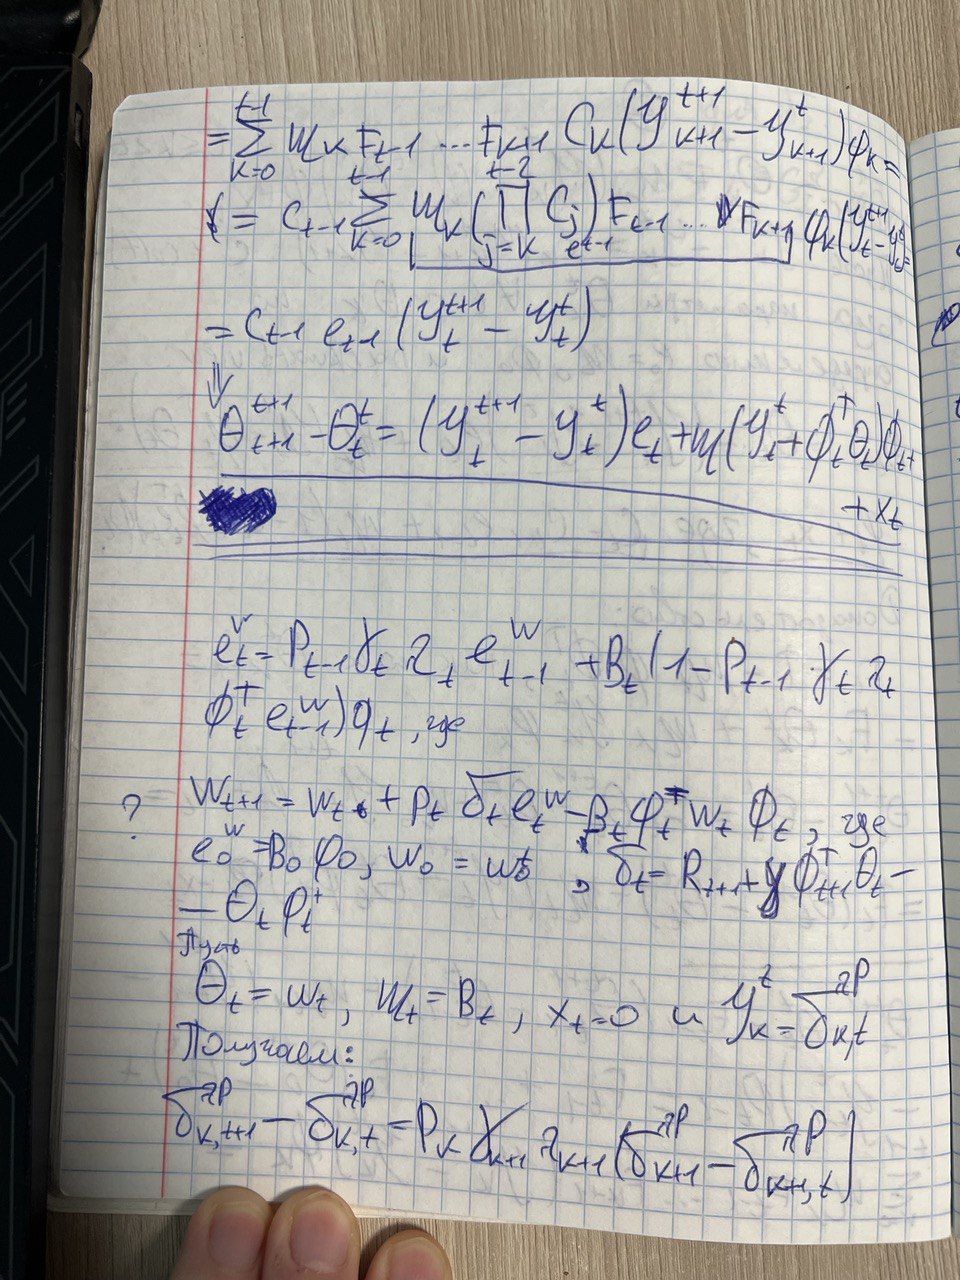 = Σ_{k=0}^{t-1} Ш_k F_{t-1} ... F_{k+1} C_k (y_{k+1}^{t+1} - y_{k+1}^t) φ_k =
= C_{t-1} Σ_{k=0}^{t-1} Ш_k (∏_{j=k}^{t-2} C_j) F_{t-1} ... F_{k+1} φ_k (y_t^{t+1} - y_t^t) =
e_{t-1}
= C_{t-1} e_{t-1} (y_t^{t+1} - y_t^t)
⇓
θ_{t+1}^{t+1} - θ_t^t = (y_t^{t+1} - y_t^t) e_t + Ш (y_t^t + φ_t^T θ_t) φ_t +
+ x_t
e_t^w = P_{t-1} γ_t λ_t e_{t-1}^w + B_t (1 - P_{t-1} γ_t λ_t
φ_t^T e_{t-1}^w) φ_t, где
? w_{t+1} = w_t + P_t δ_t e_t^w - B_t φ_t^T w_t φ_t, где
e_0^w = B_0 φ_0, w_0 = w_0^t, δ_t = R_{t+1} + γ φ_{t+1}^T θ_t -
- θ_t φ_t^T
Пусть
θ_t = w_t, Ш_t = B_t, x_t = 0 и y_k^t = δ_{k,t}^{λP}
Получаем:
δ_{k,t+1}^{λP} - δ_{k,t}^{λP} = P_k γ_{k+1} λ_{k+1} (δ_{k+1}^{λP} - δ_{k+1,t}^{λP})